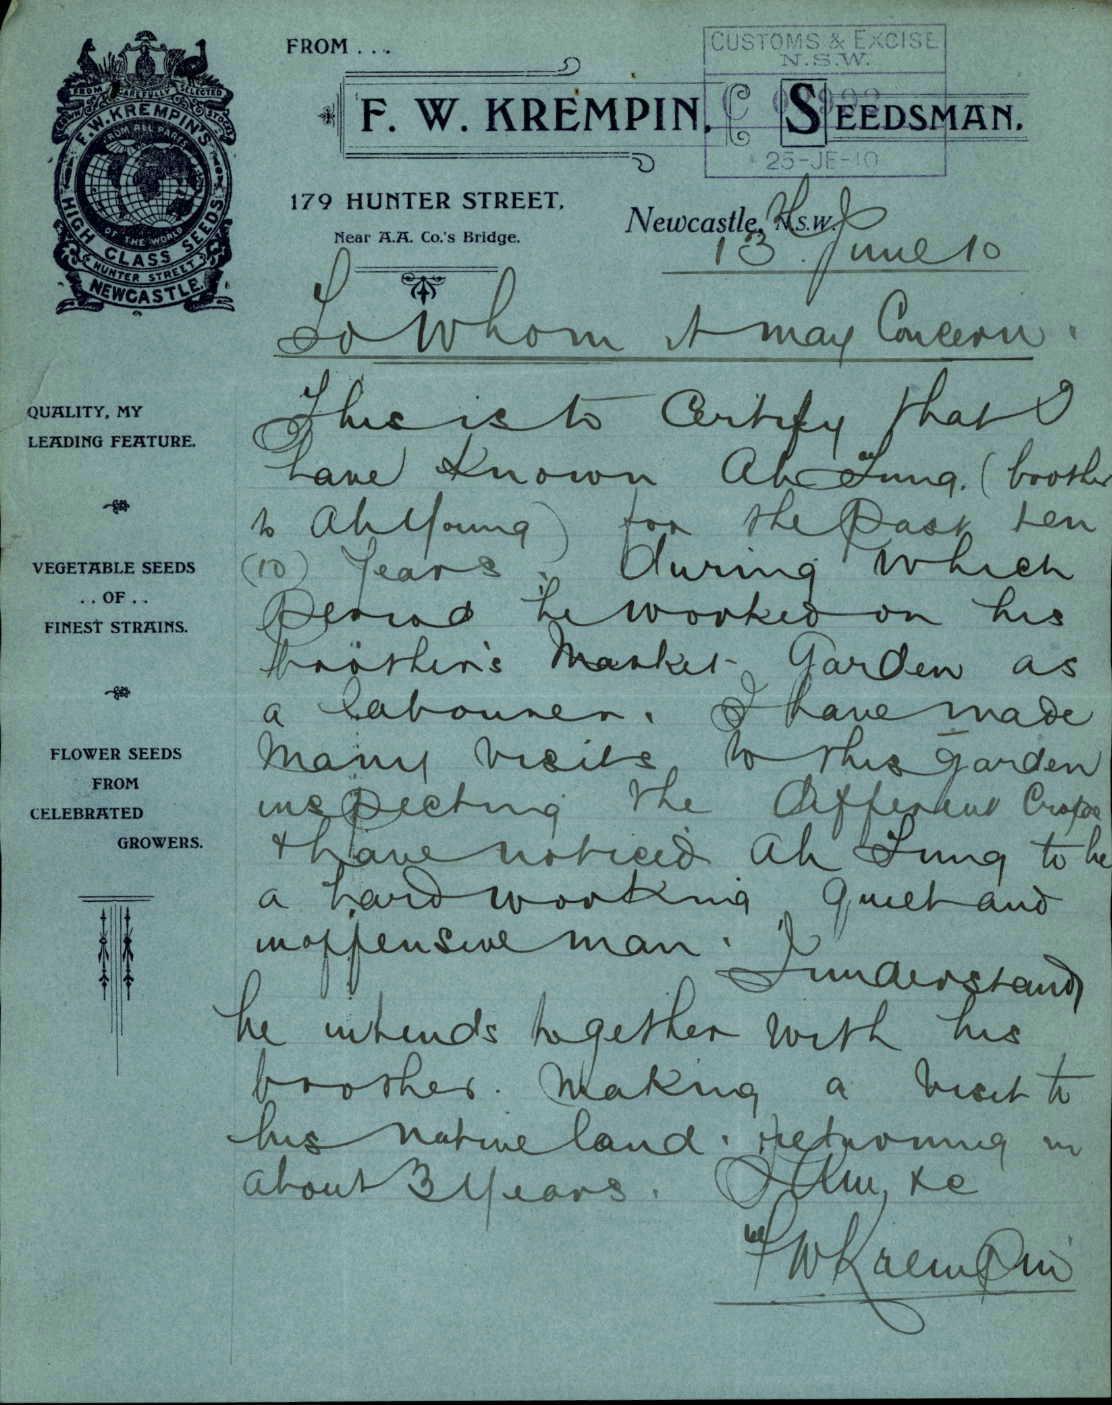 FROM . . .
CUSTOMS & EXCISE
N.S.W.
F. W. KREMPIN. SEEDSMAN.
25-JE-10
179 HUNTER STREET,
Near A.A. Co.'s Bridge.
Newcastle, N.S.W.
13 June 10
FROM CAREFULLY SELECTED
STOCKS
F.W. KREMPIN'S
FROM ALL PARTS
OF THE WORLD
HIGH CLASS SEEDS
HUNTER STREET
NEWCASTLE.
To Whom it may Concern.
This is to Certify that I
have Known Ah Lung. (brother
to Ah Young) for the Past ten
(10) Years. during which
period he worked on his
brother's Market Garden as
a labourer. I have made
many visits to this garden
inspecting the different Crops
& have noticed Ah Lung to be
a hard working quiet and
inoffensive man. I understand
he intends together with his
brother. Making a visit to
his native land. returning in
about 3 Years. I Am, &c
FW Krempin
QUALITY, MY
LEADING FEATURE.
VEGETABLE SEEDS
. . OF . .
FINEST STRAINS.
FLOWER SEEDS
FROM
CELEBRATED
GROWERS.